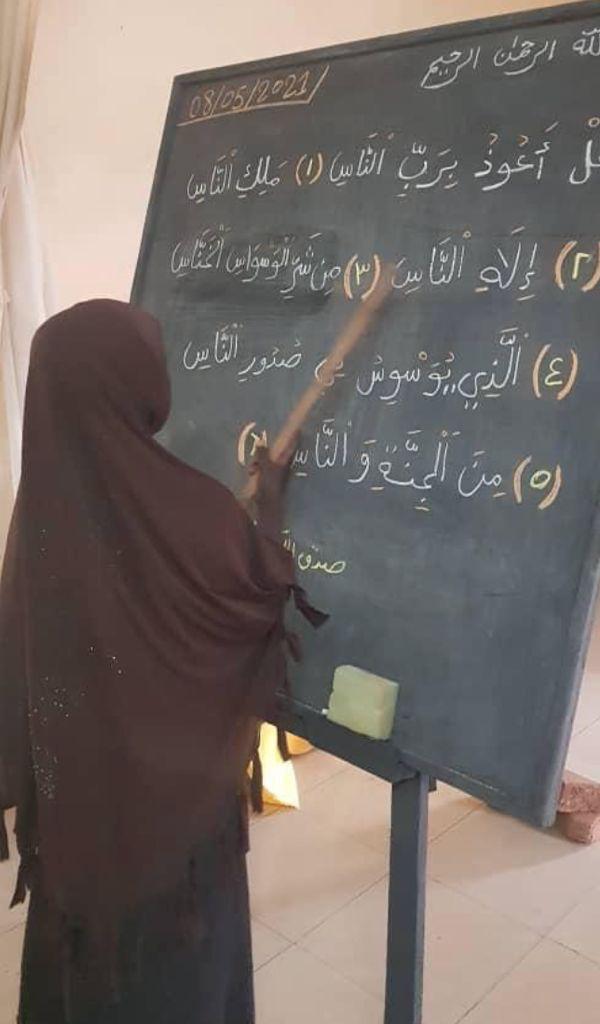 الله الرحمن الرحيم
08/05/2021
قُلْ أَعُوذُ بِرَبِّ النَّاسِ (١) مَلِكِ النَّاسِ
(٢) إِلَهِ النَّاسِ (٣) مِن شَرِّ الْوَسْوَاسِ الْخَنَّاسِ
(٤) الَّذِي يُوَسْوِسُ فِي صُدُورِ النَّاسِ
(٥) مِنَ الْجِنَّةِ وَ النَّاسِ
صدق